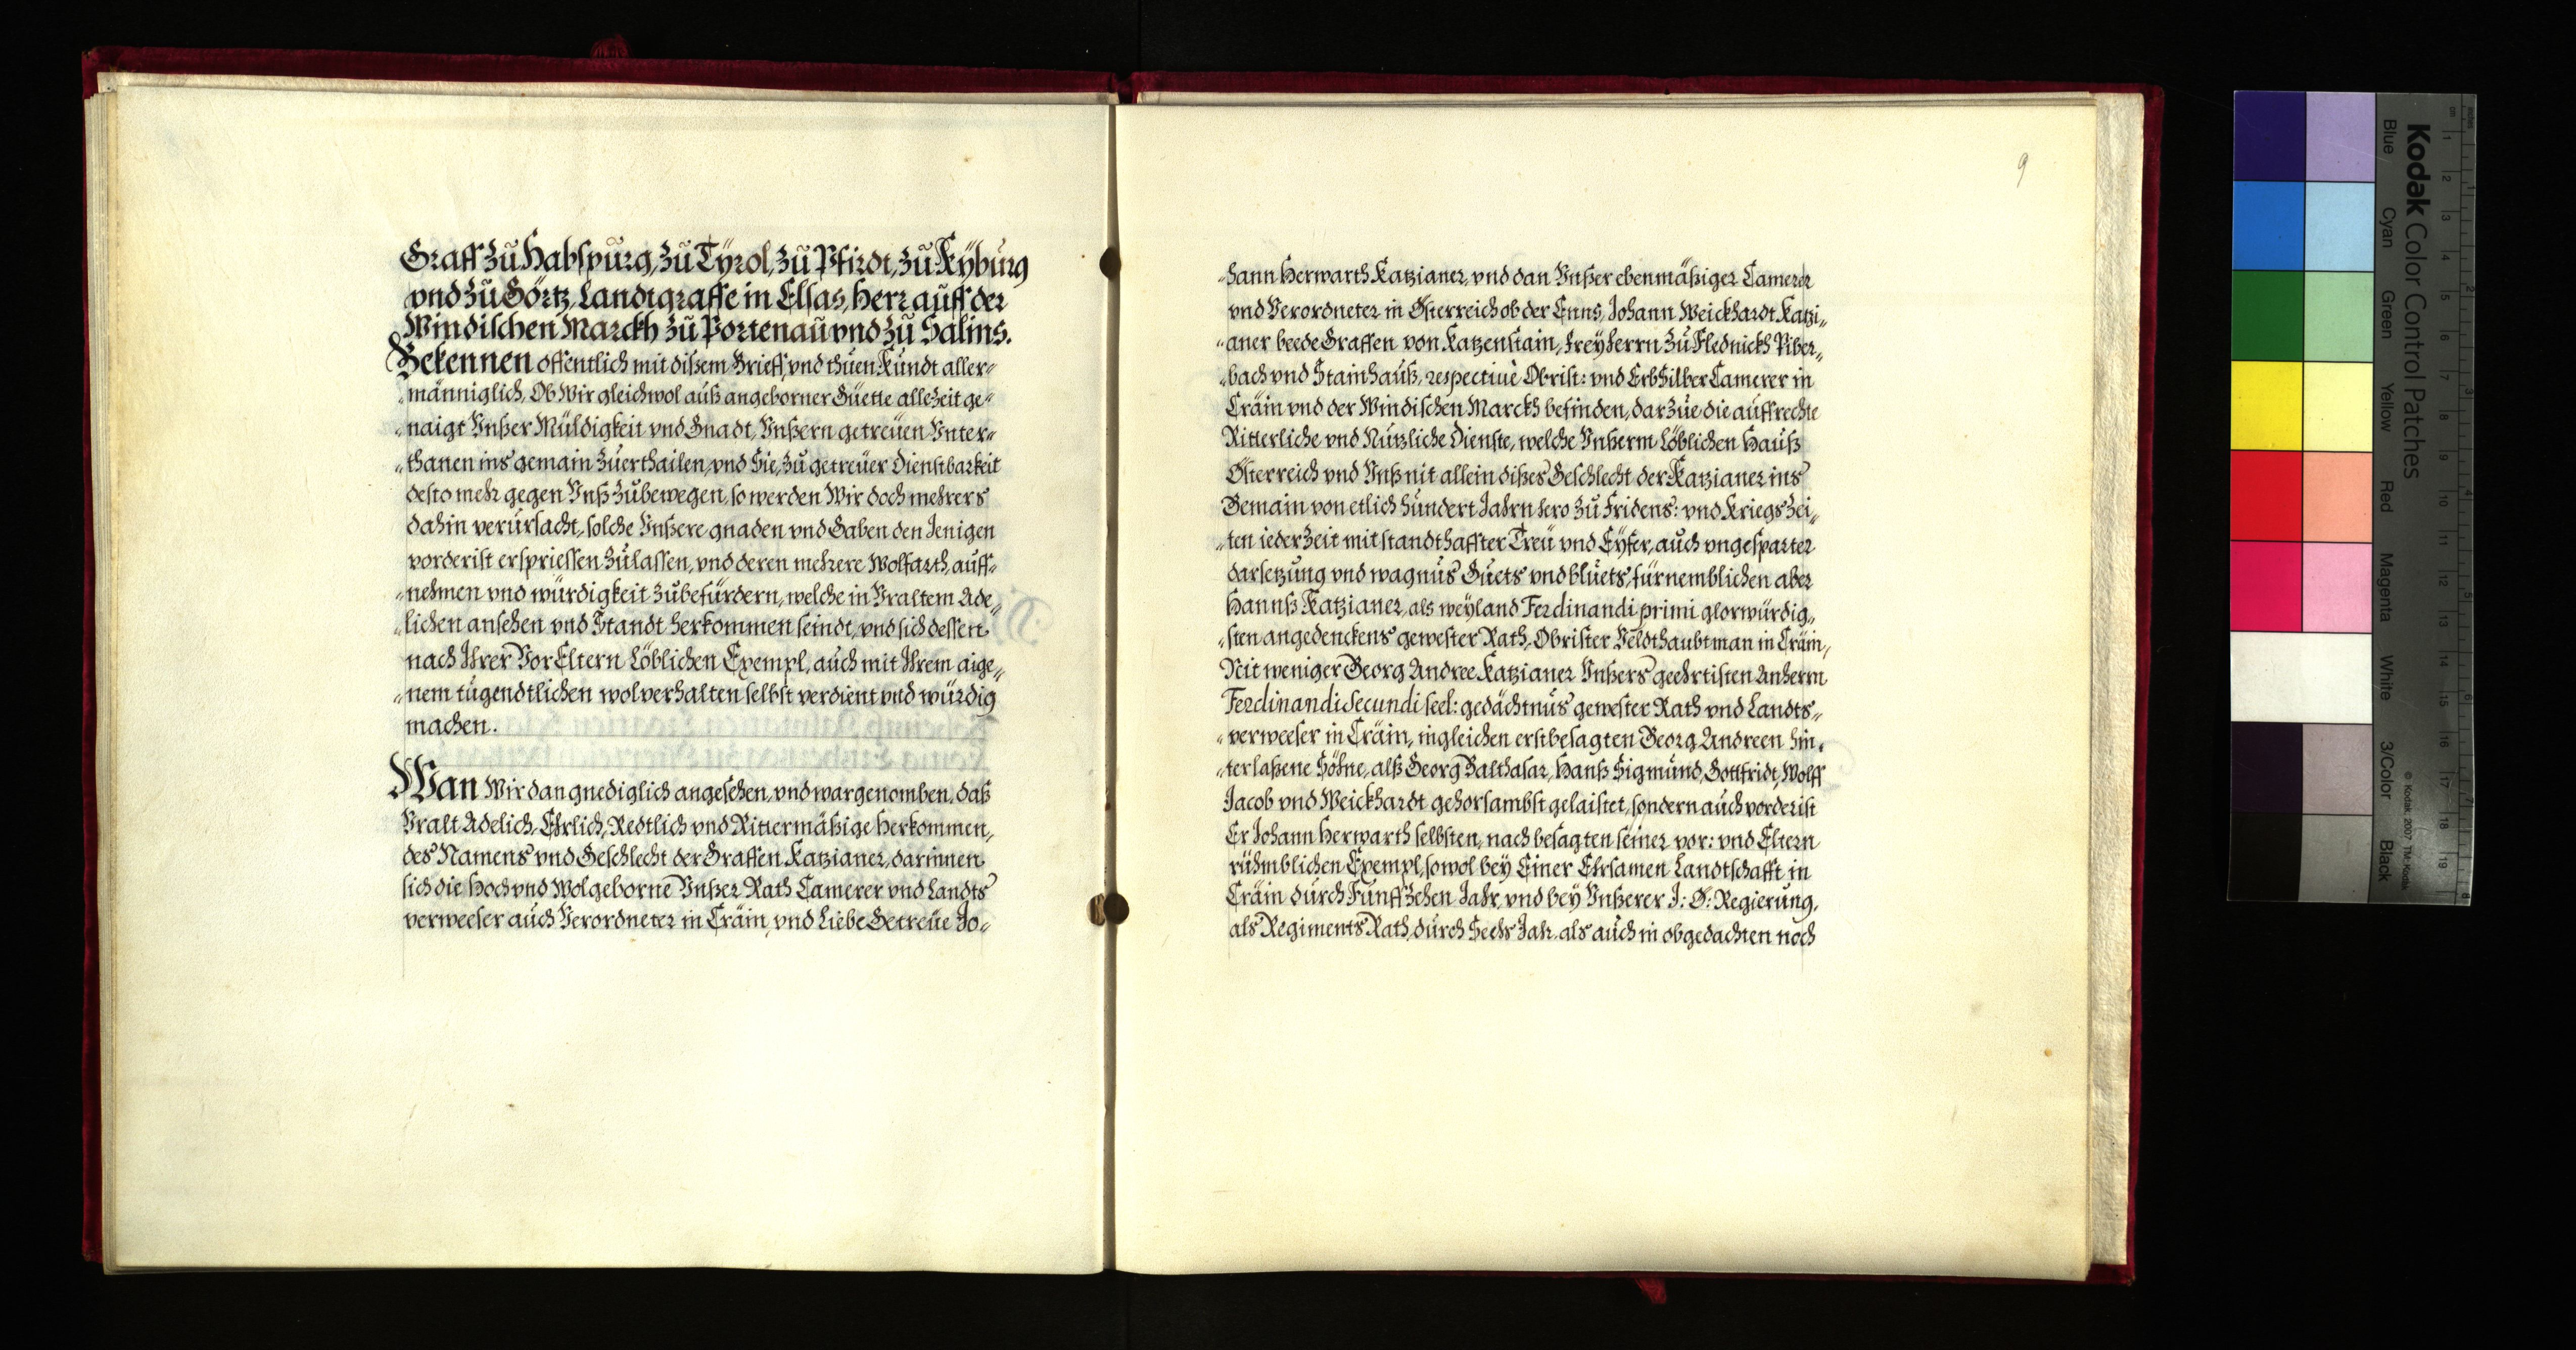 Graff Zu Habspurg, Zu Tyrol, Zu Pfirdt, Zu Kyburg
vnd Zu Görtz, Landtgraffe in Elsas, Herr auff der
Windischen Marckh Zu Portenau vnd Zu Salins.
Bekennen offentlich mit dißem Brieff, vnd thuen Kundt aller„
„männiglich, Ob Wir gleichwol auß angeborner Güette alleZeit ge„
„naigt Vnßer Müldigkeit vnd Gnadt, Vnßern getreüen Vnter„
„thanen ins gemain Zuerthailen, vnd Sie, Zu getreüer Dienstbarkeit
desto mehr gegen Vnß Zubewegen, so werden Wir doch mehrers
dahin verursacht, solche Vnßere gnaden vnd Gaben den Jenigen
vorderist erspriessen Zulassen, vnd deren mehrere Wolfarth, auff„
„nehmen vnd würdigkeit Zubefürdern, welche in Vraltem Ade„
„lichen ansehen vnd Standt herkommen seindt, vnd sich dessen
nach Ihrer VorEltern Löblichen Exempl, auch mit Ihrem aige„
„nem tugendtlichen wolverhalten selbst verdient vnd würdig
machen.
Wan Wir dan gnediglich angesehen, vnd wargenomben, daß
Vralt Adelich, Ehrlich, Redtlich vnd Rittermäßige herkommen,
des Namens vnd Geschlecht der Graffen Katzianer, darinnen
sich die Hoch vnd Wolgeborne Vnßer Rath Camerer vnd Landts
verweeser auch Verordneter in Cräin, vnd Liebe Getreüe Jo„
9
„hann Herwarth Katzianer, vnd dan Vnßer ebenmäßiger Camerer
vnd Verordneter in Österreich ob der Enns, Johann Weickhardt Katzi„
„aner beede Graffen von Katzenstain, Freyherrn Zu Flednickh Piber„
„bach vnd Stainhauß, respectiuè Obrist: vnd ErbSilber Camerer in
Cräin vnd der Windischen Marckh befinden, darZue die auffrechte
Ritterliche vnd Nutzliche Dienste, welche Vnßerm Löblichen Hauß
Österreich vnd Vnß nit allein dißes Geschlecht der Katzianer ins
Gemain von etlich hundert Jahrn hero Zu Fridens: vnd Kriegs Zei„
„ten ieder Zeit mit standthaffter Treü vnd Eyfer, auch vngesparter
darsetzung vnd wagnus Guets vnd bluets, fürnemblichen aber
Hannß Katzianer, als weyland Ferdinandi primi glorwürdig„
„sten angedenckens gewester Rath, Obrister Veldthaubtman in Cräin,
Nit weniger Georg Andree Katzianer Vnßers geehrtisten Anherrn
Ferdinandi Secundi seel: gedächtnus gewester Rath vnd Landts„
„verweeser in Cräin, ingleichen erstbesagten Georg Andreen hin„
„terlaßene Söhne, alß Georg Balthasar, Hanß Sigmund, Gottfridt, Wolff
Jacob vnd Weickhardt gehorsambst gelaistet, sondern auch vorderist
Er Johann Herwarth selbsten, nach besagten seiner vor: vnd Eltern
rühmblichen Exempl, sowol bey Einer Ehrsamen Landtschafft in
Cräin durch Funff Zehen Jahr, vnd bey Vnßerer J: Ö: Regierung,
als Regiments Rath, durch Sechs Jahr, als auch in obgedachten noch